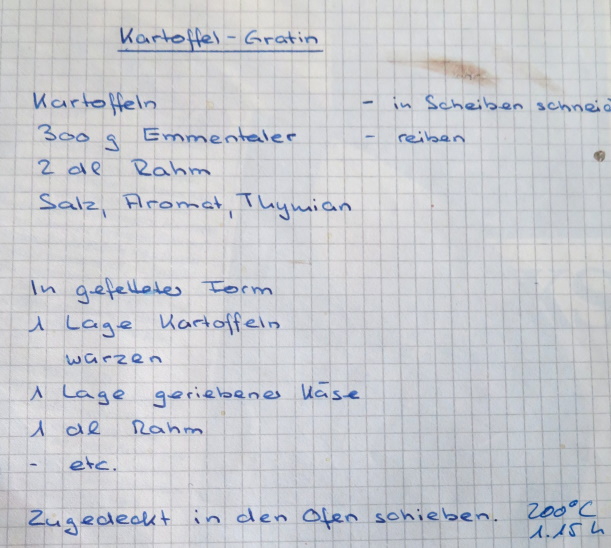 Kartoffel-Gratin
Kartoffeln - in Scheiben schneid
300 g Emmentaler - reiben
2 dl Rahm
Salz, Aromat, Thymian
In gefettetes Form
1 Lage Kartoffeln
würzen
1 Lage geriebenes Käse
1 dl Rahm
- etc.
Zugedeckt in den Ofen schieben. 200°C
1.15 h